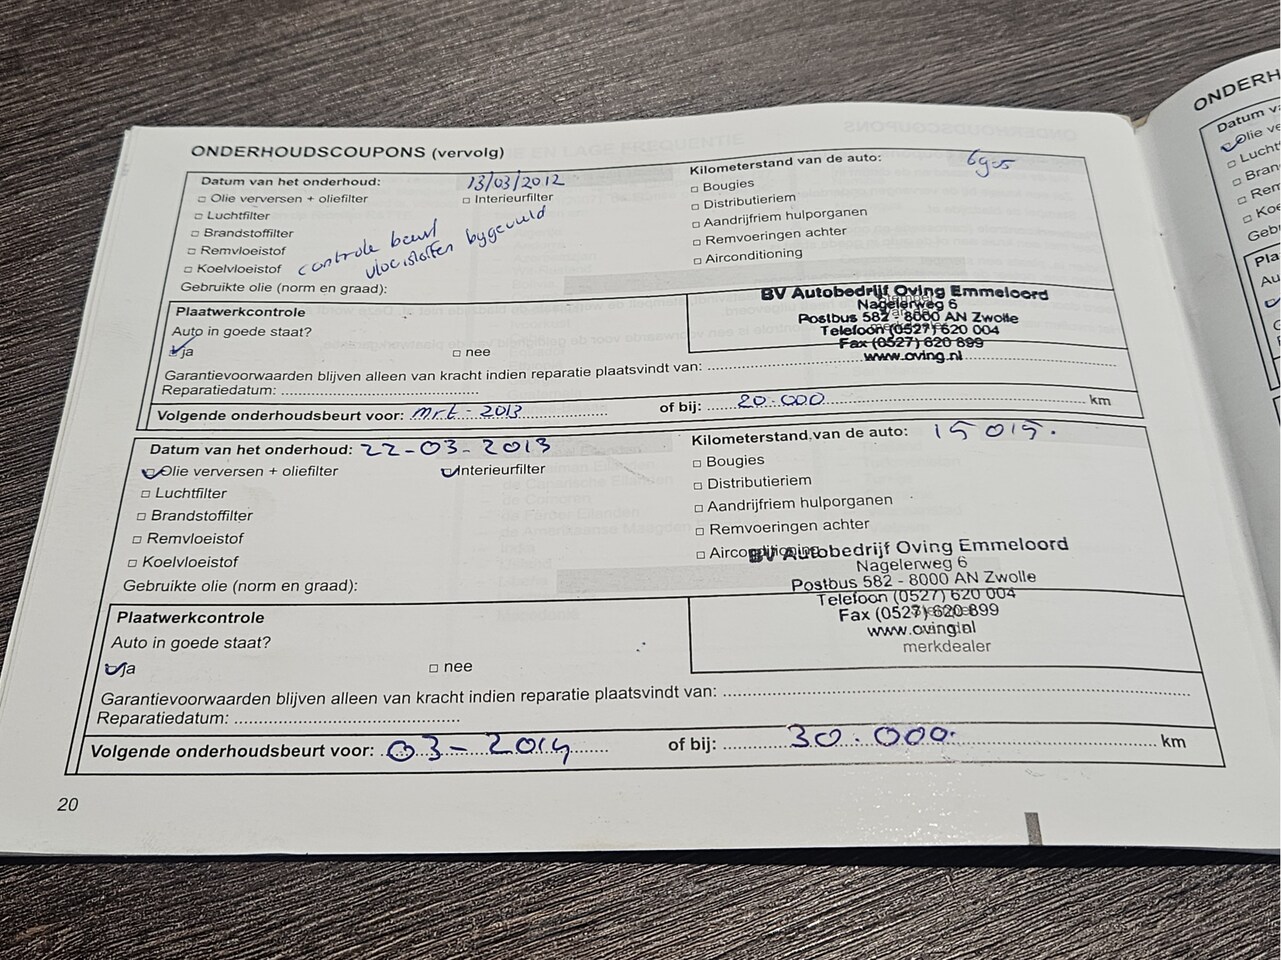 ONDERHOUDSCOUPONS (vervolg)
Datum van het onderhoud: 13/03/2012
Kilometerstand van de auto:
□ Olie verversen + oliefilter □ Interieurfilter
□ Luchtfilter
□ Brandstoffilter
□ Remvloeistof
□ Koelvloeistof
controle beurt
vloeistoffen bygevuld
□ Bougies
□ Distributieriem
□ Aandrijfriem hulporganen
□ Remvoeringen achter
□ Airconditioning
Gebruikte olie (norm en graad):
BV Autobedrijf Oving Emmeloord
Nagelerweg 6
Postbus 582 - 8000 AN Zwolle
Telefoon (0527) 620 004
Fax (0527) 620 899
www.oving.nl
Plaatwerkcontrole
Auto in goede staat?
ja □ nee
Garantievoorwaarden blijven alleen van kracht indien reparatie plaatsvindt van:
Reparatiedatum:
Volgende onderhoudsbeurt voor: mrt - 2013 of bij: 20.000 km
Datum van het onderhoud: 22-03-2013
Kilometerstand van de auto: 15015.
Olie verversen + oliefilter Interieurfilter
□ Luchtfilter
□ Brandstoffilter
□ Remvloeistof
□ Koelvloeistof
□ Bougies
□ Distributieriem
□ Aandrijfriem hulporganen
□ Remvoeringen achter
□ Airconditioning
Gebruikte olie (norm en graad):
BV Autobedrijf Oving Emmeloord
Nagelerweg 6
Postbus 582 - 8000 AN Zwolle
Telefoon (0527) 620 004
Fax (0527) 620 899
www.oving.nl
merkdealer
Plaatwerkcontrole
Auto in goede staat?
Ja □ nee
Garantievoorwaarden blijven alleen van kracht indien reparatie plaatsvindt van:
Reparatiedatum:
Volgende onderhoudsbeurt voor: 03-2014 of bij: 30.000. km
20
ONDERH
Datum va
Olie ve
Lucht
Bran
Rem
Koe
Geb
Pla
Au